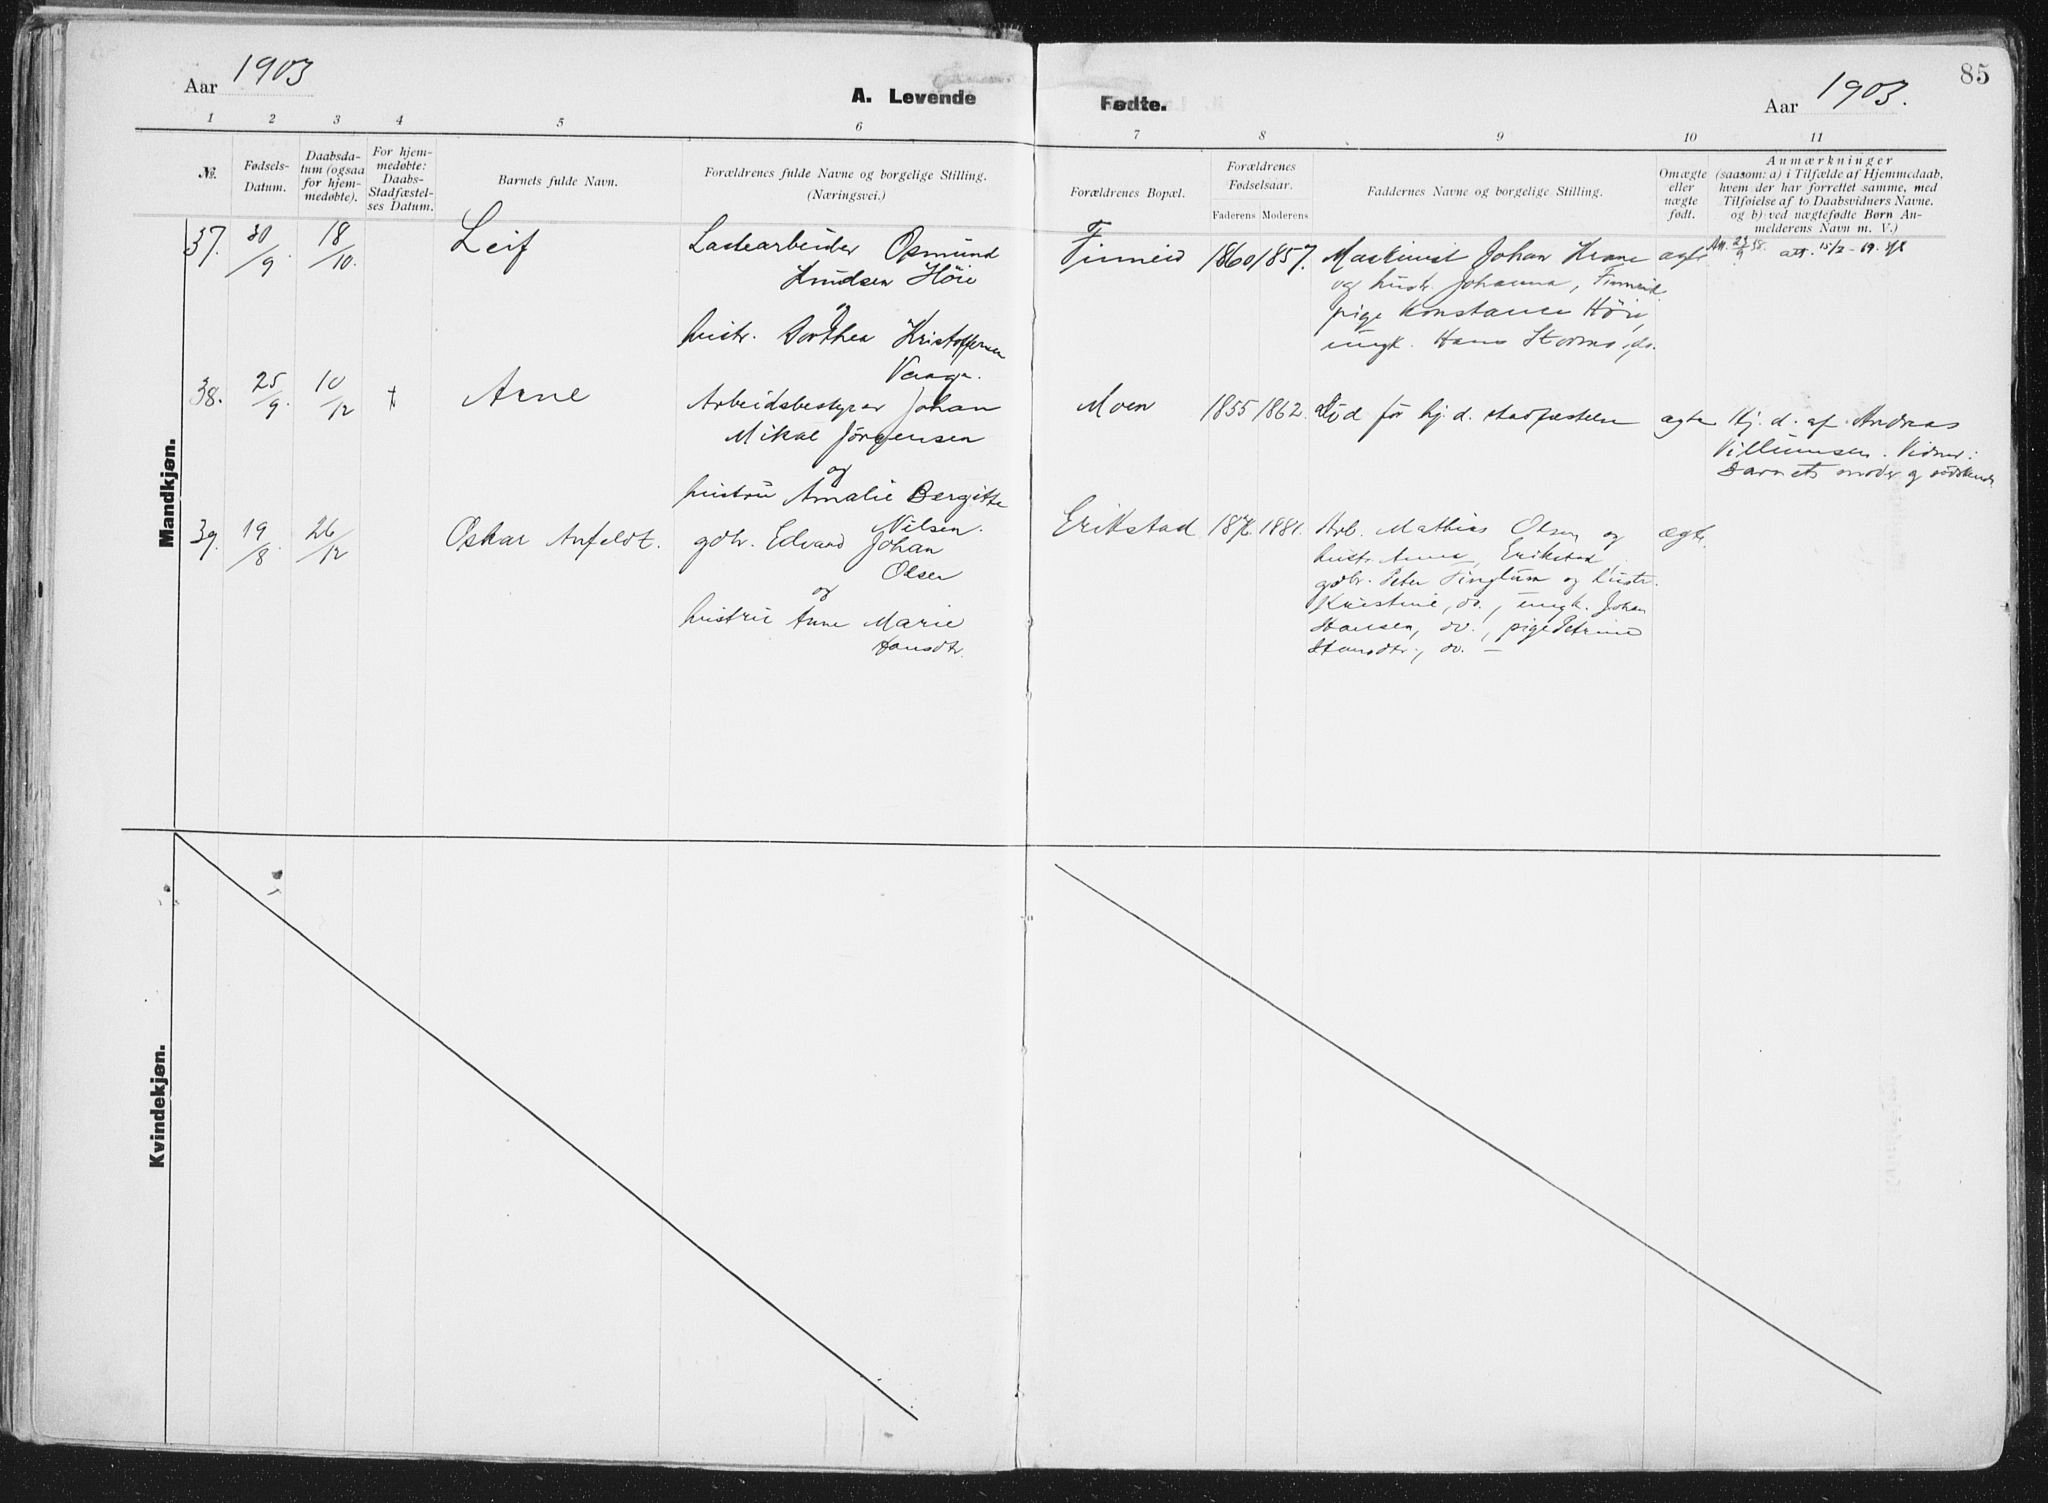 Aar 1903
A. Levende Fødte.
Aar 1903.
85
1 2 3 4 5 6 7 8 9 10 11
№.
Fødsels-
Datum.
Daabsda-
tum (ogsaa
for hjem-
medøbte).
For hjem-
medøbte:
Daabs-
Stadfæstel-
ses Datum.
Barnets fulde Navn.
Forældrenes fulde Navne og borgelige Stilling.
(Næringsvei.)
Forældrenes Bopæl.
Forældrenes
Fødselsaar.
Faderens Moderens
Faddernes Navne og borgelige Stilling.
Omægte
eller
nægte
født.
Anmærkninger
(saasom: a) i Tilfælde af Hjemmedaab,
hvem der har forrettet samme, med
Tilføielse af to Daabsvidners Navne.
og b) ved nægtefødte Børn An-
melderens Navn m. V.)
Mandkjøn.
37. 30/9 18/10. Leif
Lastearbeider Osmund
Knudsen Höie
og
hustr. Dorthea Kristoffersen
Vaage.
Finneid 1860 1857.
Maskinist Johan Krane
og hustr. Johanna, Finneid
pige Konstance Höie,
ungk. Hans Storms, do.
ægte
att. 15/2-69.
38. 25/9. 10/12 † Arne
Arbeidsbestyrer Johan
Mikal Jörgensen
og
hustru Amalie Bergitte
Nilsen.
Moen 1855 1862.
Död før hj. d. stadfæstelse
ægte
Hj. d. af Andreas
Villumsen. Vidner:
Barnets moder og
39. 19/8. 26/12 Oskar Anfeldt.
gdbr. Edvard Johan
Olsen
og
hustru Anne Marie
Hansdtr.
Erikstad 1876. 1881.
Arb. Mathias Olsen og
hustr. Anna, Erikstad,
gdbr. Peter Tinglum og hustr.
Kristine, do., ungk. Johan
Hansen, do., pige Petrine
Hansdtr., do. –
ægte.
Kvindekjøn.